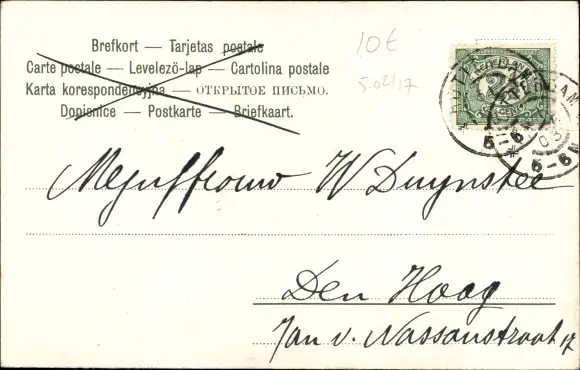 Brefkort — Tarjetas postale
Carte postale — Levelezö-lap — Cartolina postale
Karta korespondencyjna — ОТКРЫТОЕ ПИСЬМО.
Dopisnice — Postkarte — Briefkaart.
10€
5.02/17
Mejuffrouw W Duynstee
Den Haag
Jan v. Nassaustraat 17
5-6